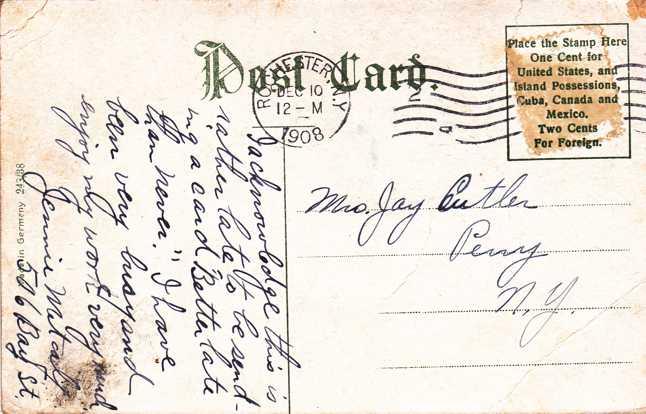 Post Card.
ROCHESTER, N.Y.
DEC 10
12-M
1908
2
Place the Stamp Here
One Cent for
United States, and
Island Possessions,
Cuba, Canada and
Mexico.
Two Cents
For Foreign.
I acknowledge this is
rather late to be send-
ing a card "Better late
than never." I have
been very busy and
enjoy my work very much
Jennie Metcalf
506 Bay St.
Mrs. Jay Cutler
Perry
N.Y.
in Germany